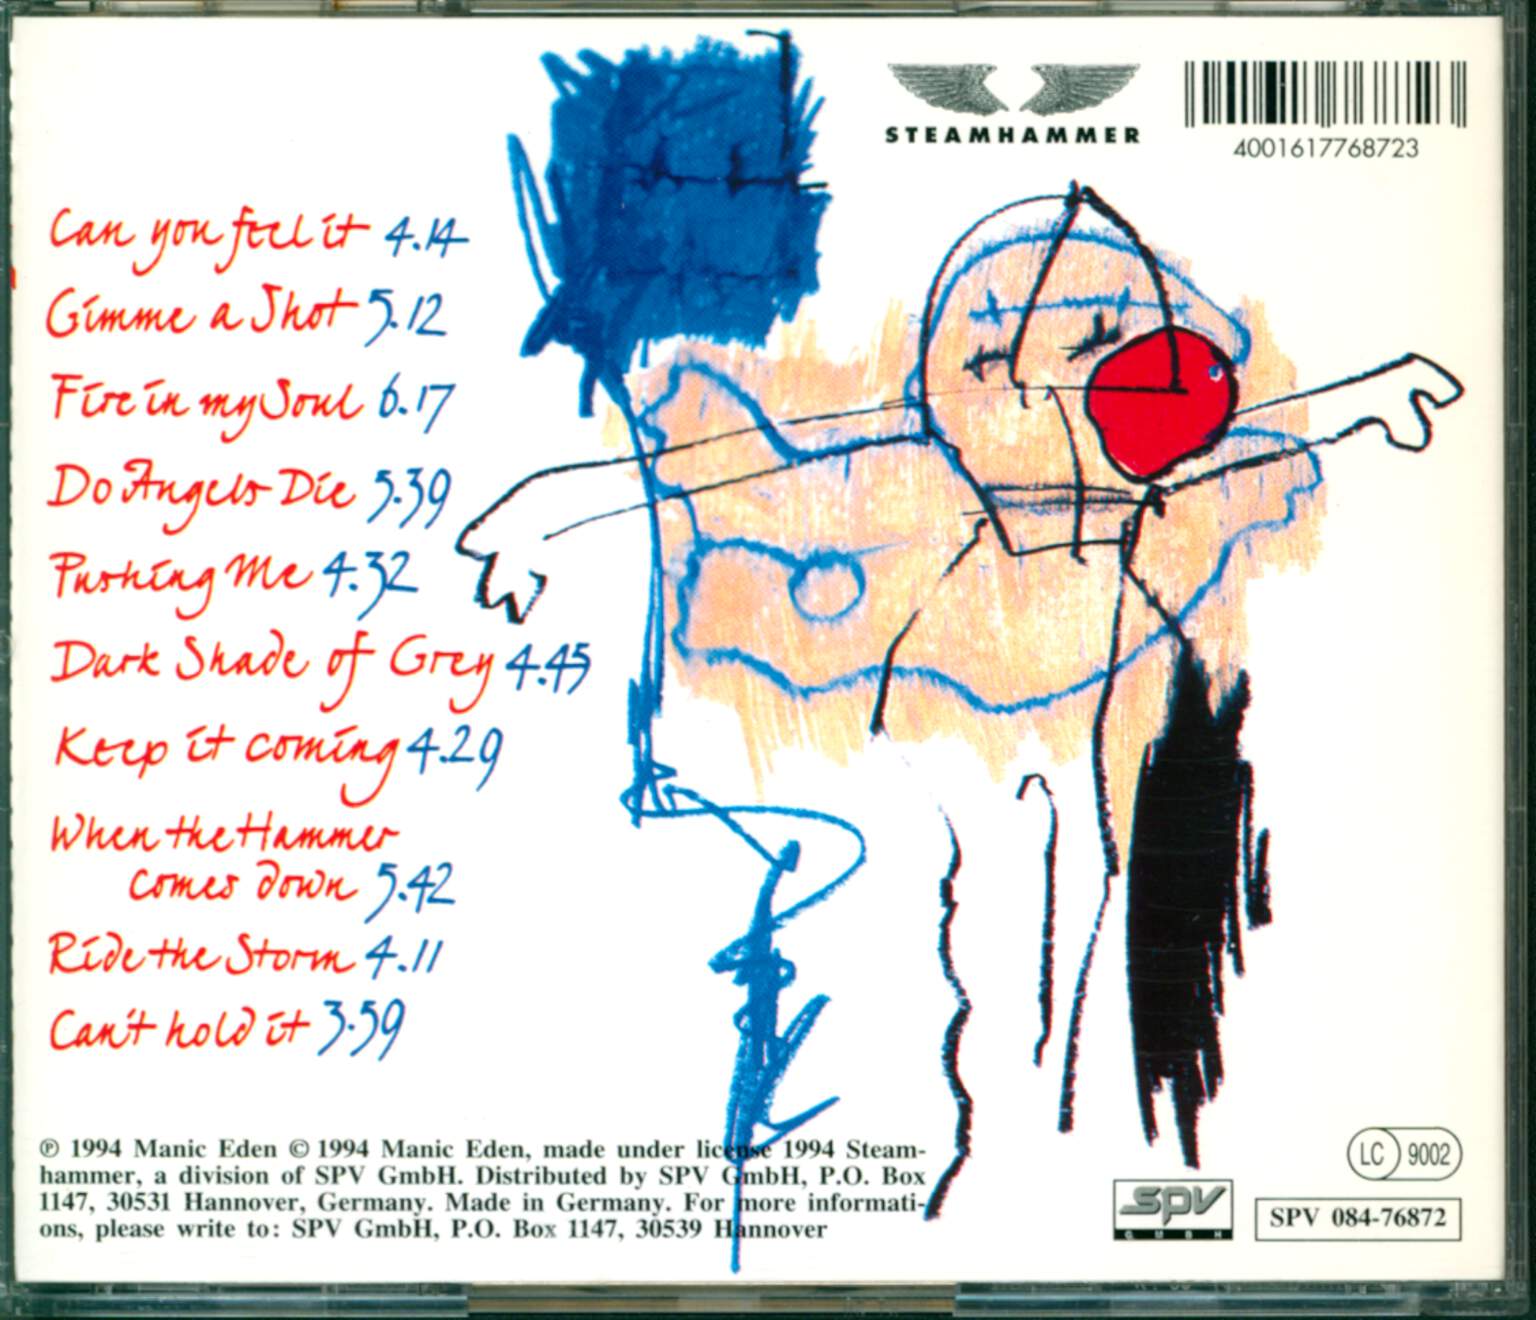 STEAMHAMMER
4001617768723
Can you feel it 4.14
Gimme a Shot 5.12
Fire in my Soul 6.17
Do Angels Die 5.39
Pushing Me 4.32
Dark Shade of Grey 4.45
Keep it coming 4.29
When the Hammer
comes down 5.42
Ride the Storm 4.11
Can't hold it 3.59
℗ 1994 Manic Eden © 1994 Manic Eden, made under license 1994 Steam-
hammer, a division of SPV GmbH. Distributed by SPV GmbH, P.O. Box
1147, 30531 Hannover, Germany. Made in Germany. For more informati-
ons, please write to: SPV GmbH, P.O. Box 1147, 30539 Hannover
LC 9002
spv
GMBH
SPV 084-76872